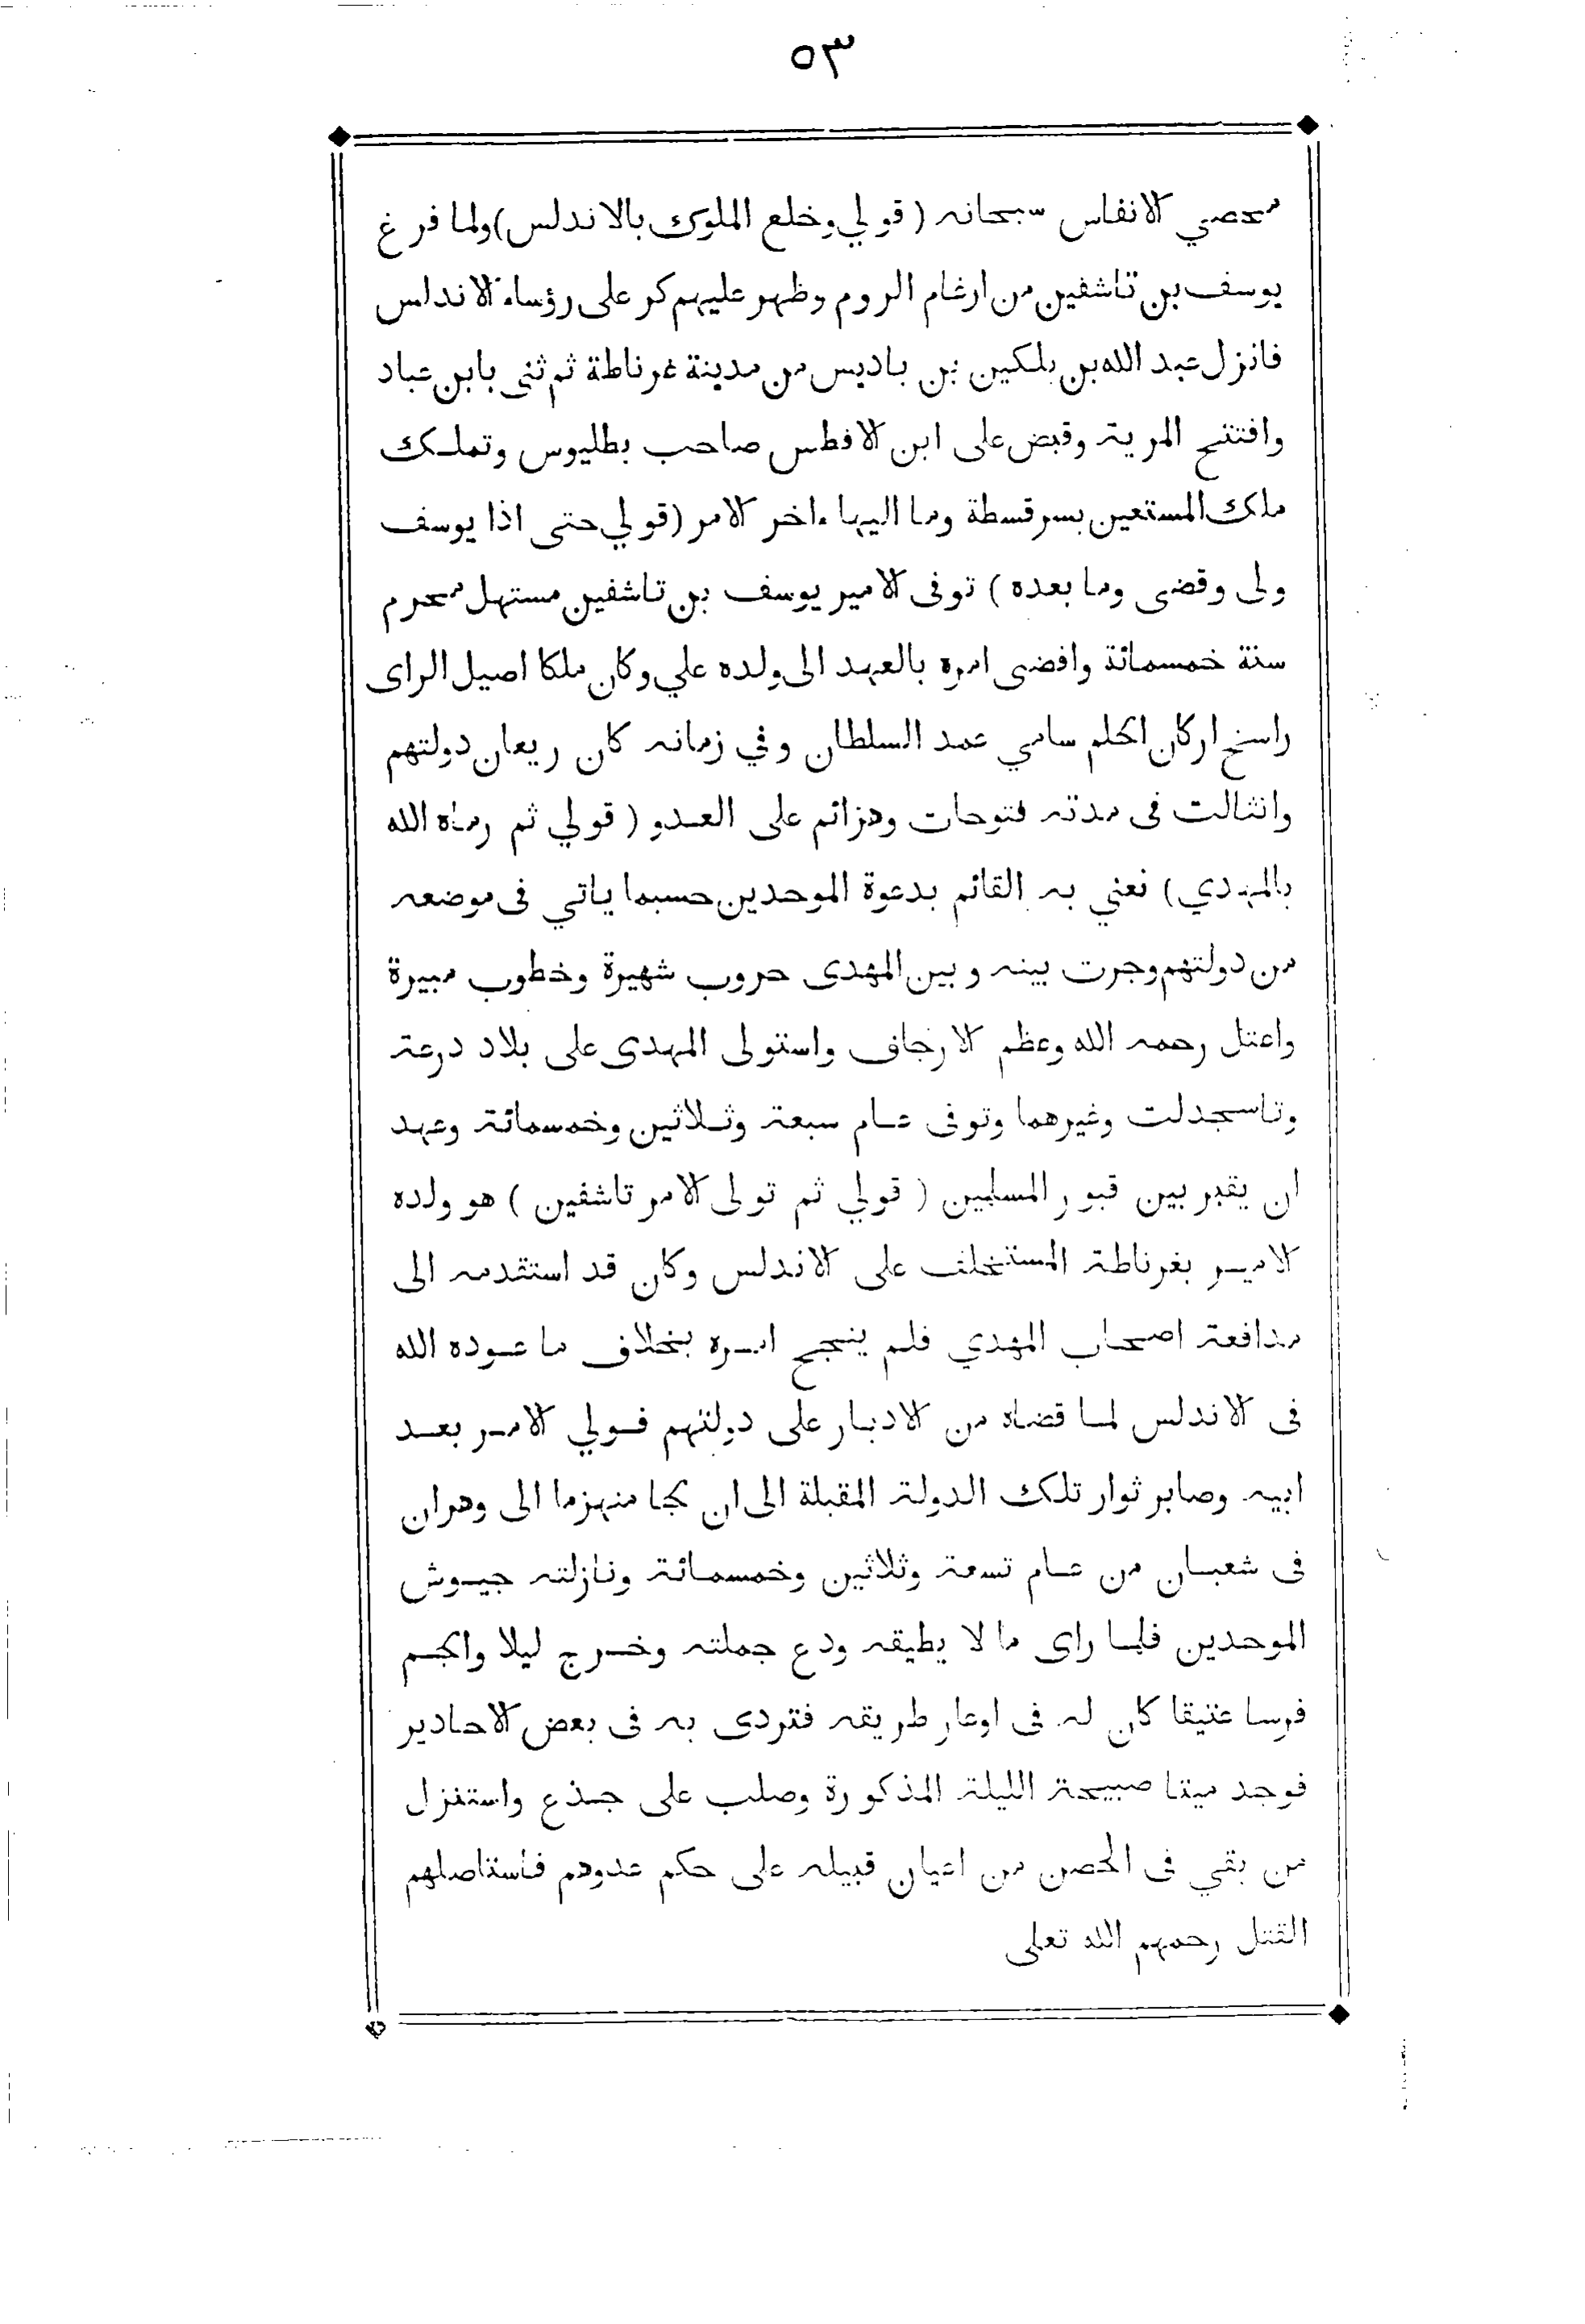 ٥٣
محصي الانفاس سبحانه (قولي وخلع الملوك بالاندلس) ولما فرغ
يوسف بن تاشفين من ارغام الروم وظهر عليهم كر على رؤساء الاندلس
فانزل عبد الله بن بلكين بن باديس من مدينة غرناطة ثم ثنى بابن عباد
وافتتح المرية وقبض على ابن الافطس صاحب بطليوس وتملك
ملك المستعين بسرقسطة وما اليها ءاخر الامر (قولي حتى اذا يوسف
ولى وقضى وما بعده) توفى الامير يوسف بن تاشفين مستهل محرم
سنة خمسمائة وافضى امره بالعهد الى ولده علي وكان ملكا اصيل الراى
راسخ اركان الحلم سامي عمد السلطان وفي زمانه كان ريعان دولتهم
وانثالت فى مدته فتوحات وهزائم على العدو (قولي ثم رماه الله
بالمهدي) نعني به القائم بدعوة الموحدين حسبما ياتي فى موضعه
من دولتهم وجرت بينه وبين المهدى حروب شهيرة وخطوب مبيرة
واعتل رحمه الله وعظم الارجاف واستولى المهدى على بلاد درعة
وتاسجدلت وغيرهما وتوفى عام سبعة وثلاثين وخمسمائة وعهد
ان يقبر بين قبور المسلمين (قولي ثم تولى الامر تاشفين) هو ولده
الامير بغرناطة المستخلف على الاندلس وكان قد استقدمه الى
مدافعة اصحاب المهدي فلم ينجح امره بخلاف ما عوده الله
فى الاندلس لما قضاه من الادبار على دولتهم فولي الامر بعد
ابيه وصابر ثوار تلك الدولة المقبلة الى ان نجا منهزما الى وهران
فى شعبان من عام تسعة وثلاثين وخمسمائة ونازلته جيوش
الموحدين فلما راى ما لا يطيقه ودع جملته وخرج ليلا والجم
فرسا عتيقا كان له فى اوعار طريقه فتردى به فى بعض الاحادير
فوجد ميتا صبيحة الليلة المذكورة وصلب على جذع واستنزل
من بقي فى الحصن من اعيان قبيله على حكم عدوهم فاستاصلهم
القتل رحمهم الله تعلى